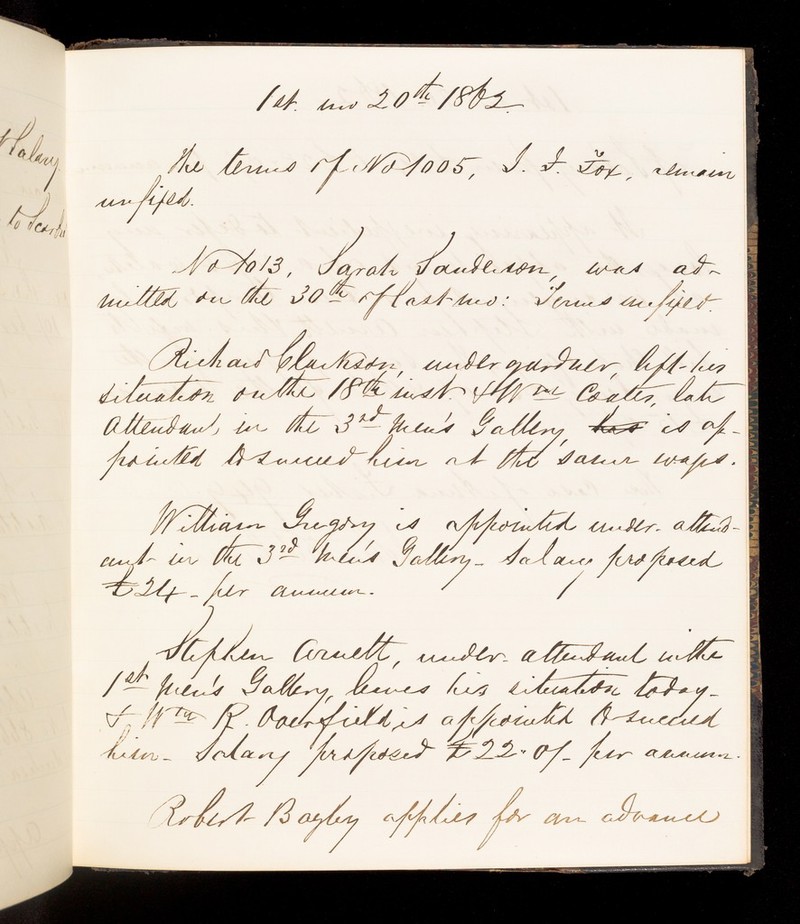 & Salary
to
1st. mo 20th 1862.
The terms of No 1005, J. J. Fox, remain
unfixed.
No 1013, Sarah Sanderson, was ad-
mitted on the 30th of last mo: Terms unfixed.
Richard Clarkson, under gardner, left his
situation on the 18th inst. & Wm Coates, late
Attendant, in the 3rd Men's Gallery, has is ap-
pointed to succeed him at the same wages.
William Gregory is appointed under-attend-
ant in the 3rd Men's Gallery - Salary proposed
£24 - per annum.
Stephen Arnett, under-attendant in the
1st Men's Gallery, leaves his situation today -
& Wm R. Overfield, is appointed to succeed
him - Salary proposed £22.0/- per annum.
Robert Bagley applies for an advance